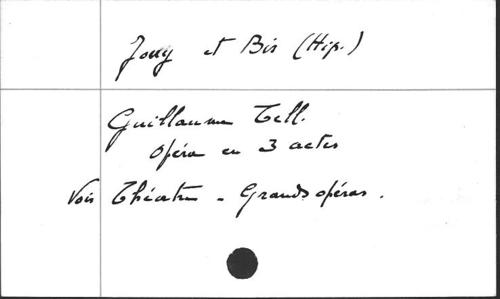 Jouy et Bis (Hip.)
Guillaume Tell.
Opéra en 3 actes
Voir Théâtre - Grands opéras.